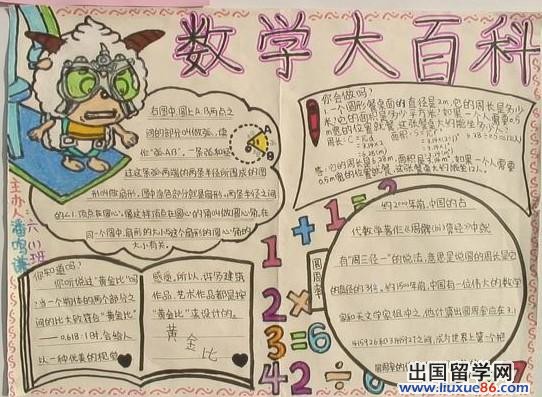 数学大百科
右图中,圆上A、B两点之
间的部分叫做弧,读
作"弧AB",一条弧和经
过这条弧两端的两条半径所围成的图
形叫做扇形。图中涂色部分就是扇形。两条半径之间
的∠1,顶点在圆心。像这样顶点在圆心的角叫做圆心角。在
同一个圆中,扇形的大小与这个扇形的圆心角的
大小有关。
A
B
主办人
六(1)班
你会做吗?
1.一个圆形餐桌面的直径是2m,它的周长是多少
米?它的面积是多少平方米?如果一个人需要0.5
m宽的位置就餐,这张餐桌大约能坐多少人?
答:它的周长是6.28m,面积是3.14m²,如果一个人需要
0.5m宽的位置就餐,这张餐桌大约能坐12人。
1+1=2
2×
3=6
42÷6=7
圆周率
约2000年前,中国的古
代数学著作《周髀算经》中就
有"周三径一"的说法,意思是说圆的周长是它
的直径的3倍。约1500年前,中国有一位伟大的数学
家和天文学家祖冲之。他计算出圆周率应在3.1
415926和3.1415927之间,成为世界上第一个把
你知道吗?
你听说过"黄金比"吗
?当一个物体的两个部分之
间的比大致符合"黄金比"
——0.618:1时,会给人
以一种优美的视觉
感觉。所以,许多建筑
作品、艺术作品都是按
"黄金比"来设计的。
黄金比
出国留学网
www.liuxue86.com